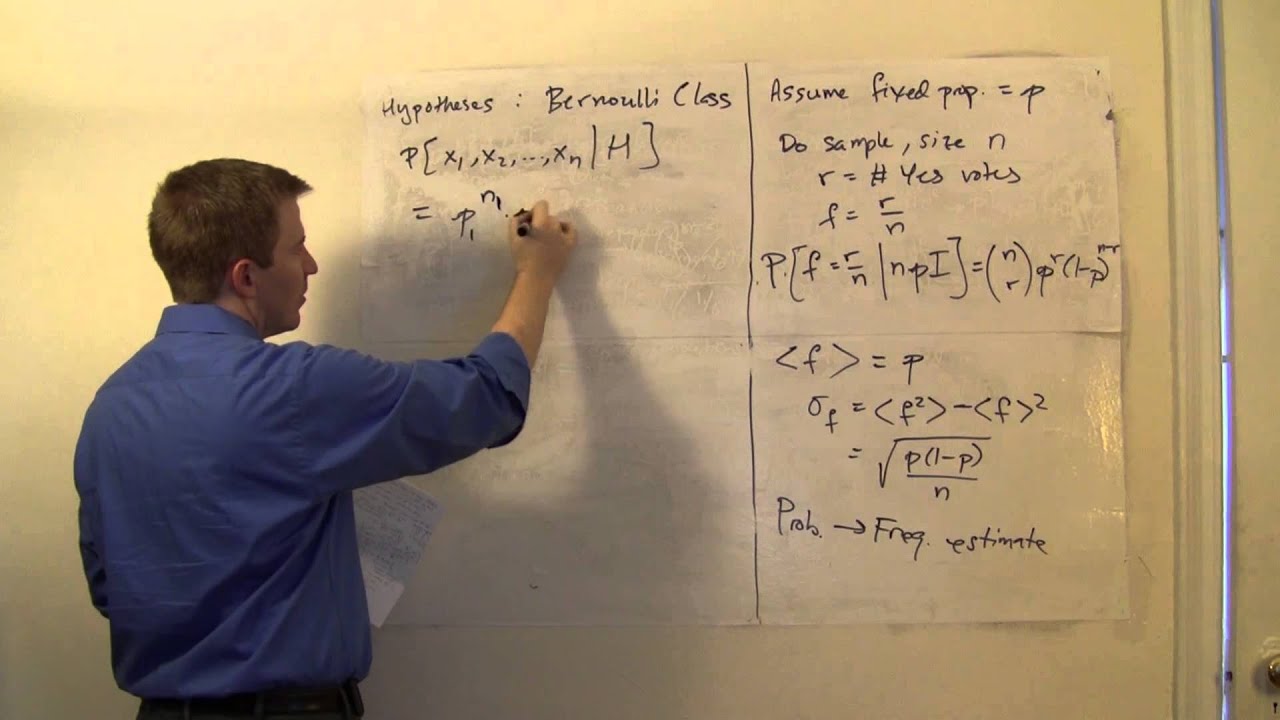 Hypotheses : Bernoulli Class
P[x₁,x₂,...,xₙ|H]
= p₁^n₁ ·
Assume fixed prop. = p
Do sample, size n
r = # Yes votes
f = r/n
P[f = r/n | n p I] = (n r) p^r (1-p)^n-r
<f> = p
σ_f = <f²> - <f>²
= √(p(1-p)/n)
Prob. → Freq. estimate